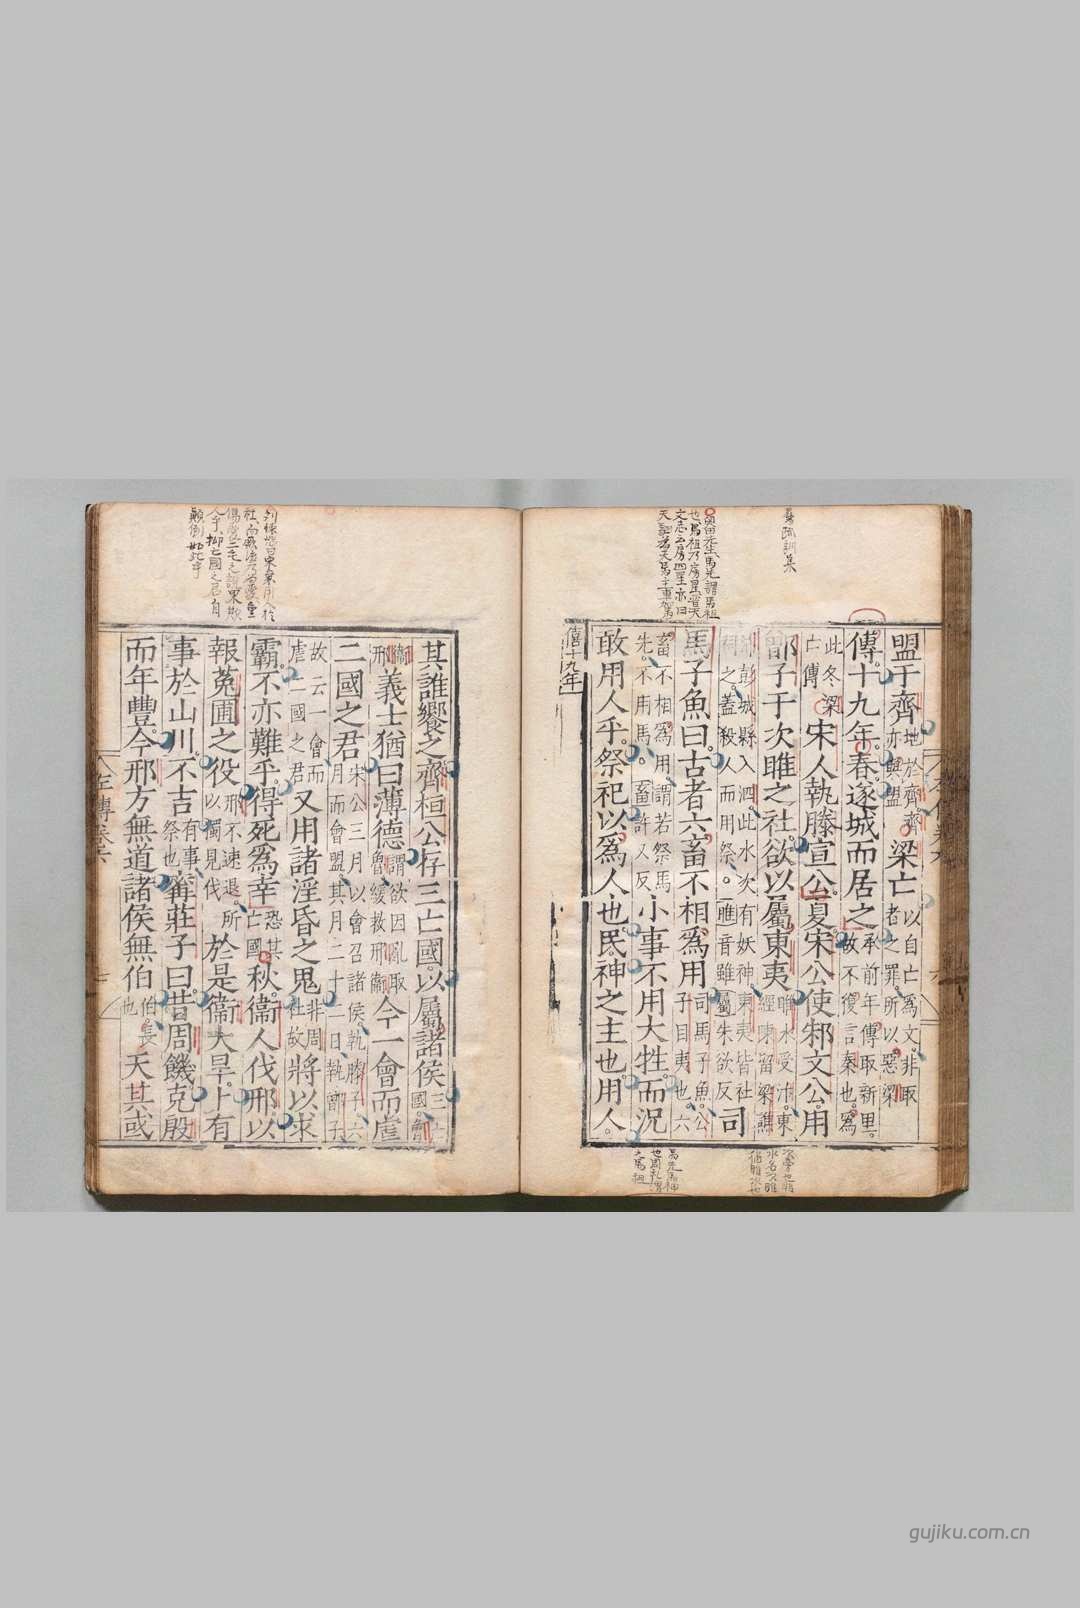 盟于齊地於齊齊亦與盟梁亡以自亡爲文非取者之罪所以惡梁
傳十九年春遂城而居之承前年傳取新里故不復言秦也爲
此冬梁亡傳宋人執滕宣公夏宋公使邾文公用
鄫子于次睢之社欲以屬東夷睢水受汴東經陳留梁譙
彭城縣入泗此水次有妖神東夷皆社祠之蓋殺人而用祭睢音雖屬朱欲反司
馬子魚曰古者六畜不相爲用司馬子魚公子目夷也六
畜不相爲用謂若祭馬先不用馬畜許又反小事不用大牲而況
敢用人乎祭祀以爲人也民神之主也用人
僖十九年
其誰饗之齊桓公存三亡國以屬諸侯三國
義士猶曰薄德謂欲因亂取魯緩救邢衞今一會而虐
二國之君宋公三月以會召諸侯執滕子六月而會盟其月二十二日執鄫子
故云一會而虐二國之君又用諸淫昏之鬼非周社故將以求
霸不亦難乎得死爲幸恐其亡國秋衞人伐邢以
報菟圃之役邢不速退所以獨見伐於是衞大旱卜有
事於山川不吉有事祭也甯莊子曰昔周饑克殷
而年豐今邢方無道諸侯無伯伯長也天其或
左傳卷六
gujiku.com.cn